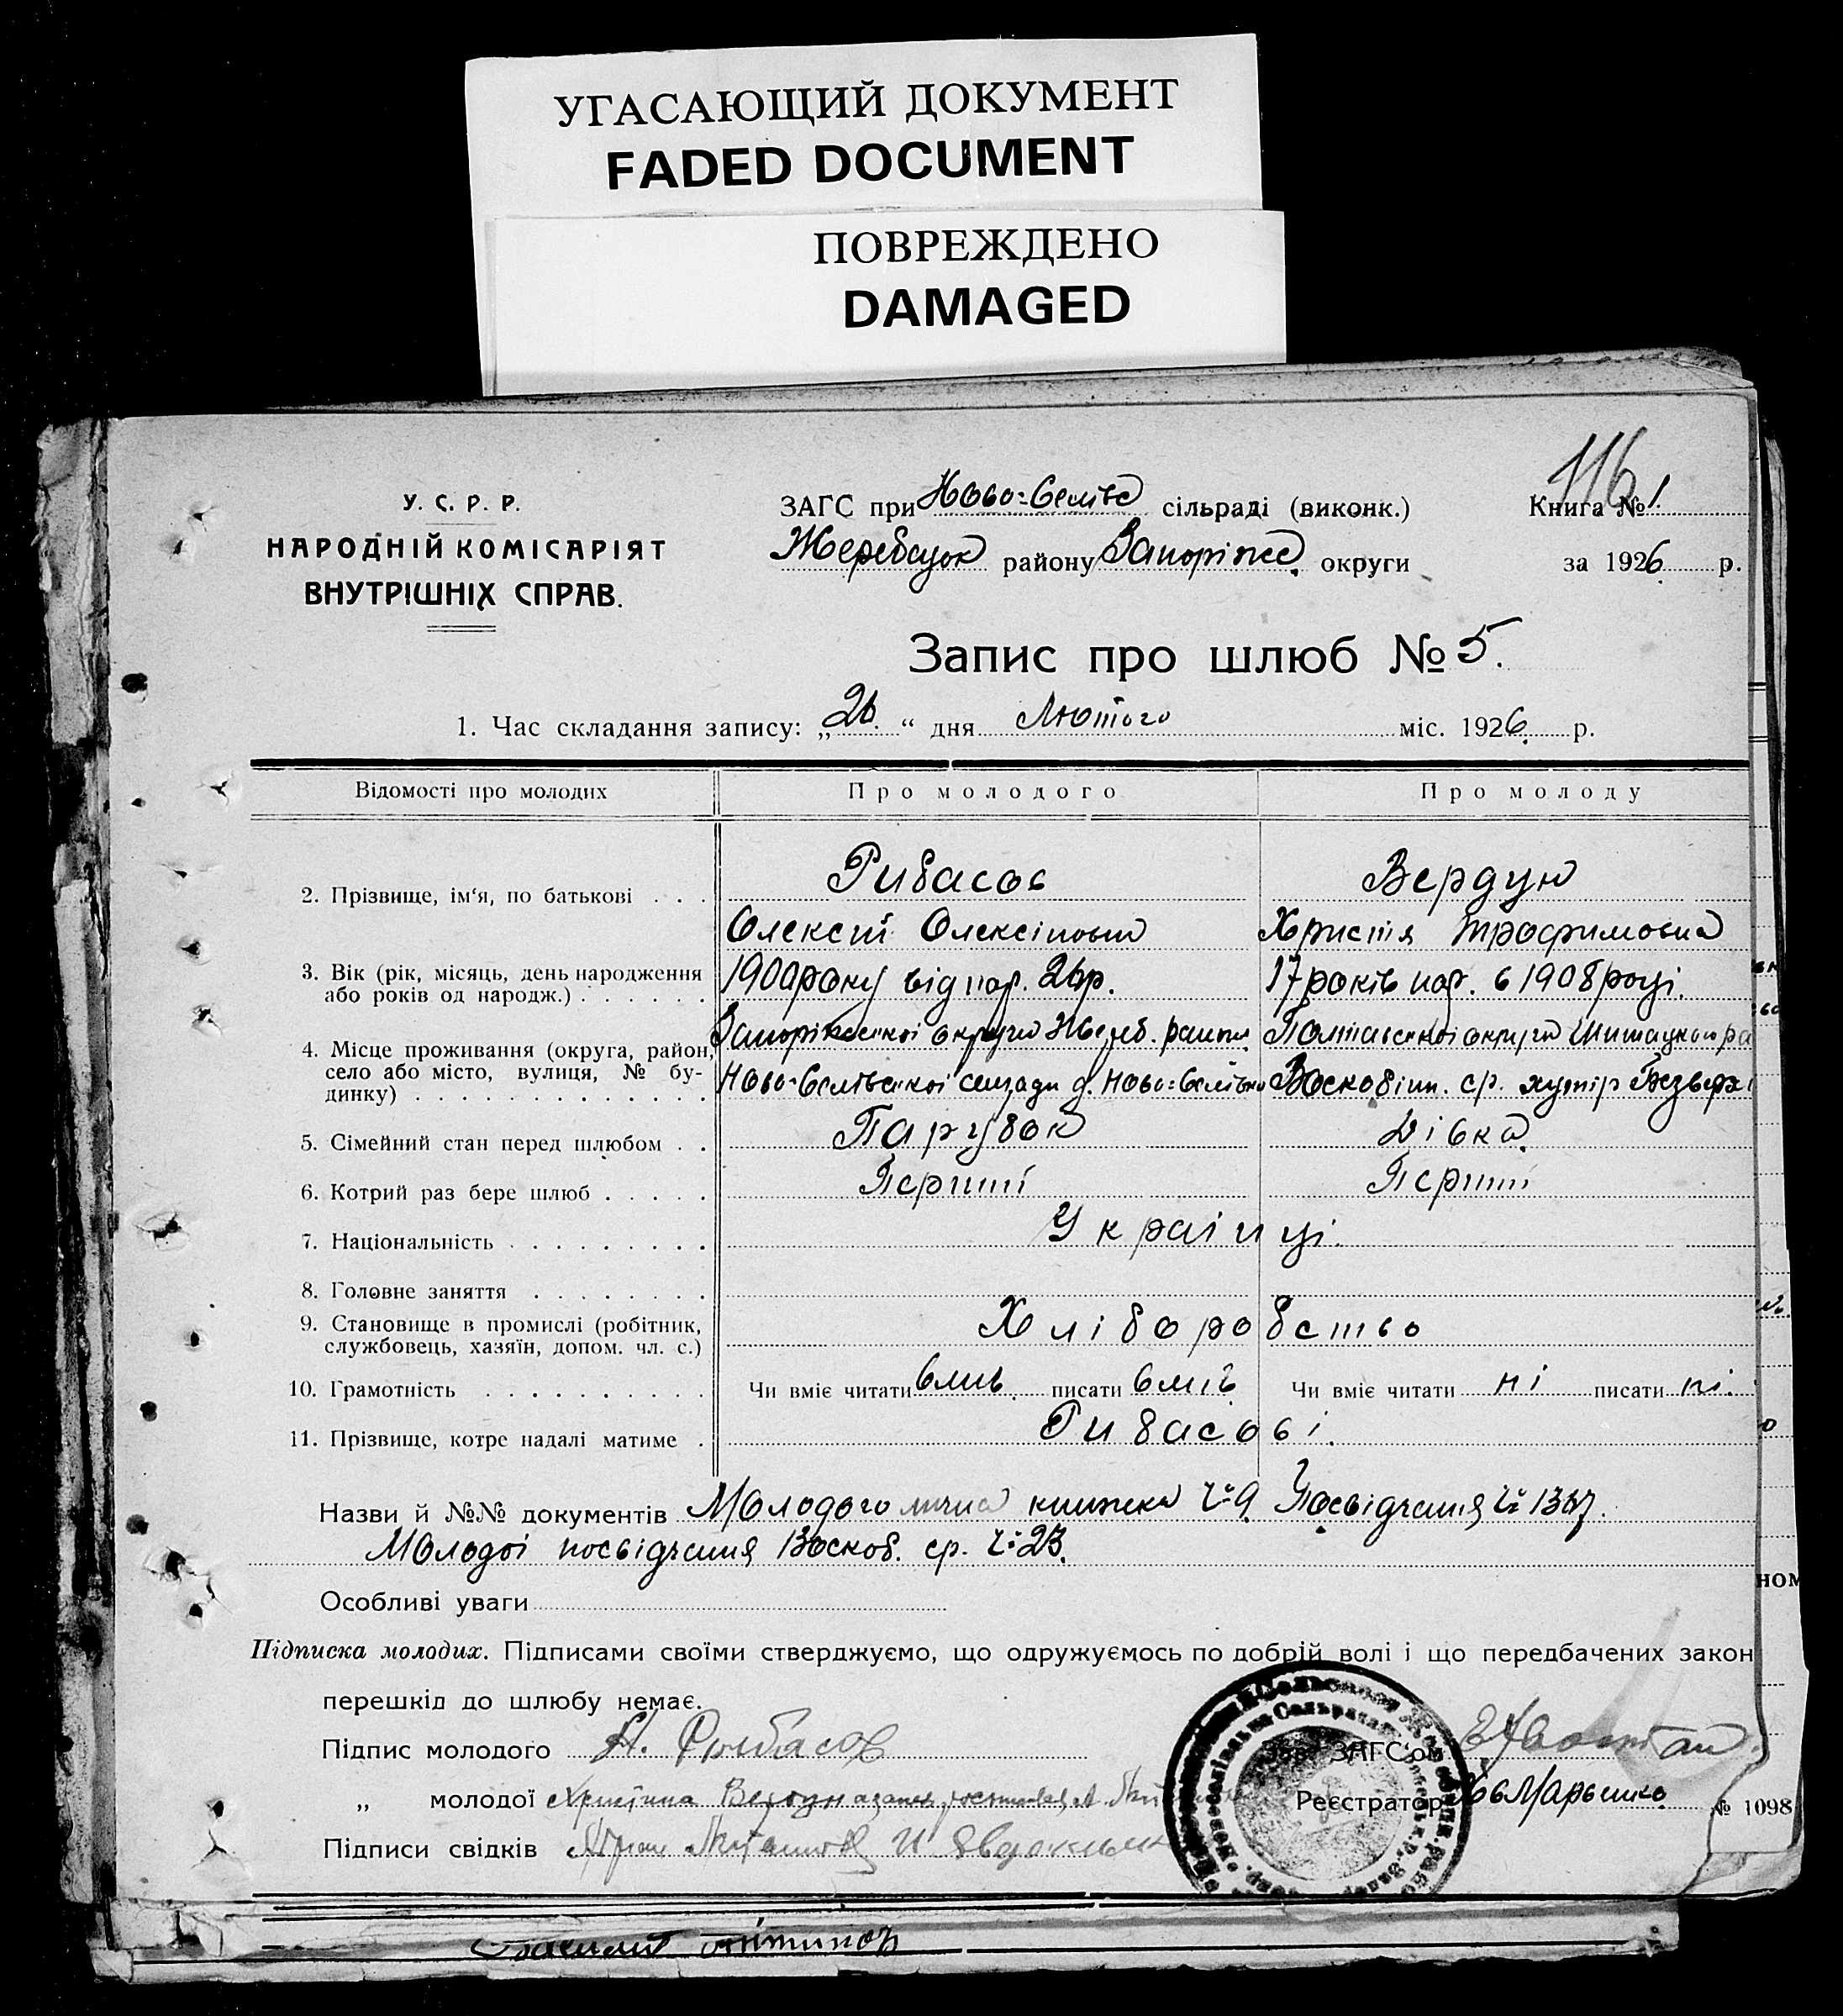 УГАСАЮЩИЙ ДОКУМЕНТ
FADED DOCUMENT
ПОВРЕЖДЕНО
DAMAGED
116
У. С. Р. Р.
НАРОДНІЙ КОМІСАРІЯТ
ВНУТРІШНІХ СПРАВ.
ЗАГС при Ново-Селівс сільраді (виконк.)
Жеребецок району Запоріже. округи
Книга № 1.
за 1926 р.
Запис про шлюб № 5.
1. Час складання запису: „26.“ дня Лютого міс. 1926. р.
Відомості про молодих Про молодого Про молоду
2. Прізвище, ім‘я, по батькові . . . Рибасов Вердун
Олексій Олексійович Христія Трофимовна
3. Вік (рік, місяць, день народження або років од народж.) . . . . . . 1900 року від нар. 26 р. 17 років нар. в 1908 році.
4. Місце проживання (округа, район, село або місто, вулиця, № будинку) . . . Запоріжської округи Жереб. району Полтавської округи Шишацкого ра
Ново-Селівської сельради д. Ново-Селівка Воскобіш. ср. хутір Безверх
5. Сімейний стан перед шлюбом . . Парубок Дівка.
6. Котрий раз бере шлюб . . . . . Перший Перший
7. Національність . . . . . . . . . Українці.
8. Головне заняття . . . . . . . .
9. Становище в промислі (робітник, службовець, хазяїн, допом. чл. с.) Хліборобство
10. Грамотність . . . . . . . . . . Чи вміє читати вмів. писати вміє Чи вміє читати ні писати ні.
11. Прізвище, котре надалі матиме . Рибасові.
Назви й №№ документів Молодого лична книжка Ч: 9. Посвідчання Ч: 1367.
Молодої посвідчання Воскоб. ср. Ч: 23.
Особливі уваги
Підписка молодих. Підписами своїми стверджуємо, що одружуємось по добрій волі і що передбачених закон
ном
перешкід до шлюбу немає.
Підпис молодого А. Рыбасов
Зав. ЗАГС‘ом
„ молодої Христина Вердун
Реєстратор
№ 1098
Підписи свідків